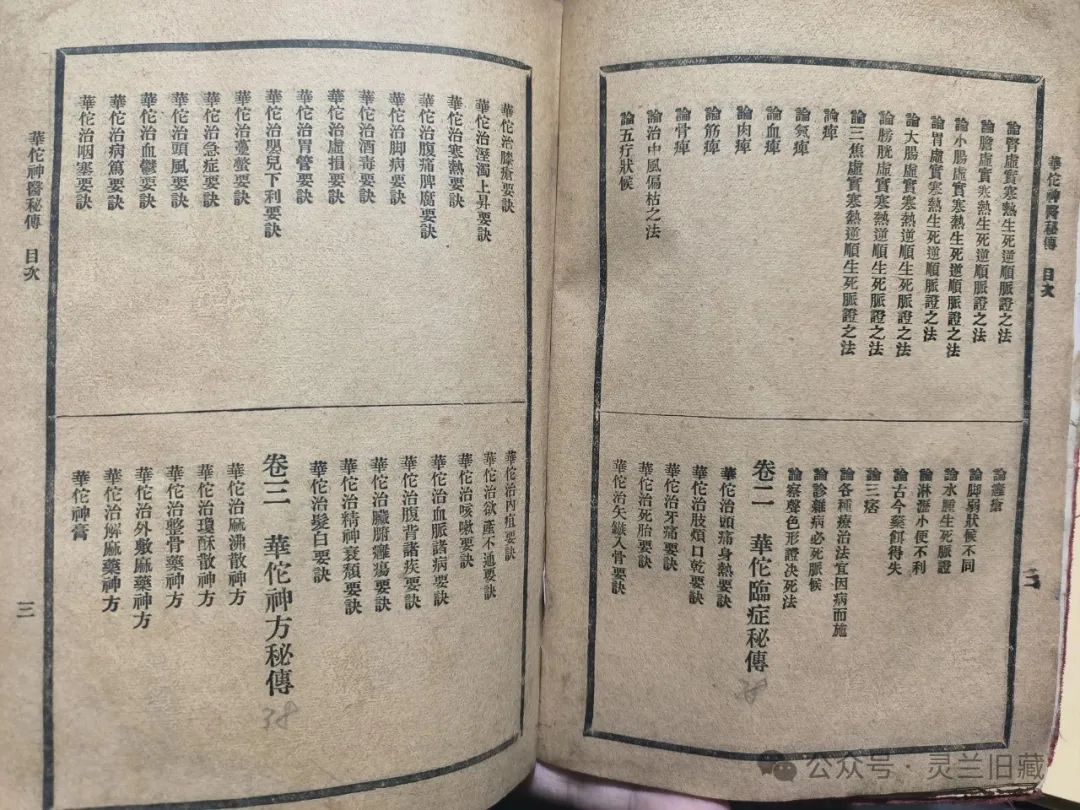 華佗神醫秘傳 目次
二
論腎虛實寒熱生死逆順脈證之法
論膽虛實寒熱生死逆順脈證之法
論小腸虛實寒熱生死逆順脈證之法
論胃虛實寒熱生死逆順脈證之法
論大腸虛實寒熱逆順生死脈證之法
論膀胱虛實寒熱逆順生死脈證之法
論三焦虛實寒熱逆順生死脈證之法
論痺
論氣痺
論血痺
論肉痺
論筋痺
論骨痺
論治中風偏枯之法
論五疔狀候
論癰瘡
論脚弱狀候不同
論水腫生死脈證
論淋瀝小便不利
論古今藥餌得失
論三痞
論各種療治法宜因病而施
論診雜病必死脈候
論察聲色形證决死法
卷二 華佗臨症秘傳
38
華佗治頭痛身熱要訣
華佗治肢煩口乾要訣
華佗治牙痛要訣
華佗治死胎要訣
華佗治矢鏃入骨要訣
華佗治膝瘡要訣
華佗治溼濁上昇要訣
華佗治寒熱要訣
華佗治腹痛脾腐要訣
華佗治脚病要訣
華佗治酒毒要訣
華佗治虛損要訣
華佗治胃管要訣
華佗治嬰兒下利要訣
華佗治蠆螫要訣
華佗治急症要訣
華佗治頭風要訣
華佗治血鬱要訣
華佗治病篤要訣
華佗治咽塞要訣
華佗治內疽要訣
華佗治欲產不通要訣
華佗治咳嗽要訣
華佗治血脈諸病要訣
華佗治腹背諸疾要訣
華佗治臟腑癰瘍要訣
華佗治精神衰頹要訣
華佗治髮白要訣
卷三 華佗神方秘傳
38
華佗治麻沸散神方
華佗治瓊酥散神方
華佗治整骨藥神方
華佗治外敷麻藥神方
華佗治解麻藥神方
華佗神膏
華佗神醫秘傳 目次
三
公众号·灵兰旧藏